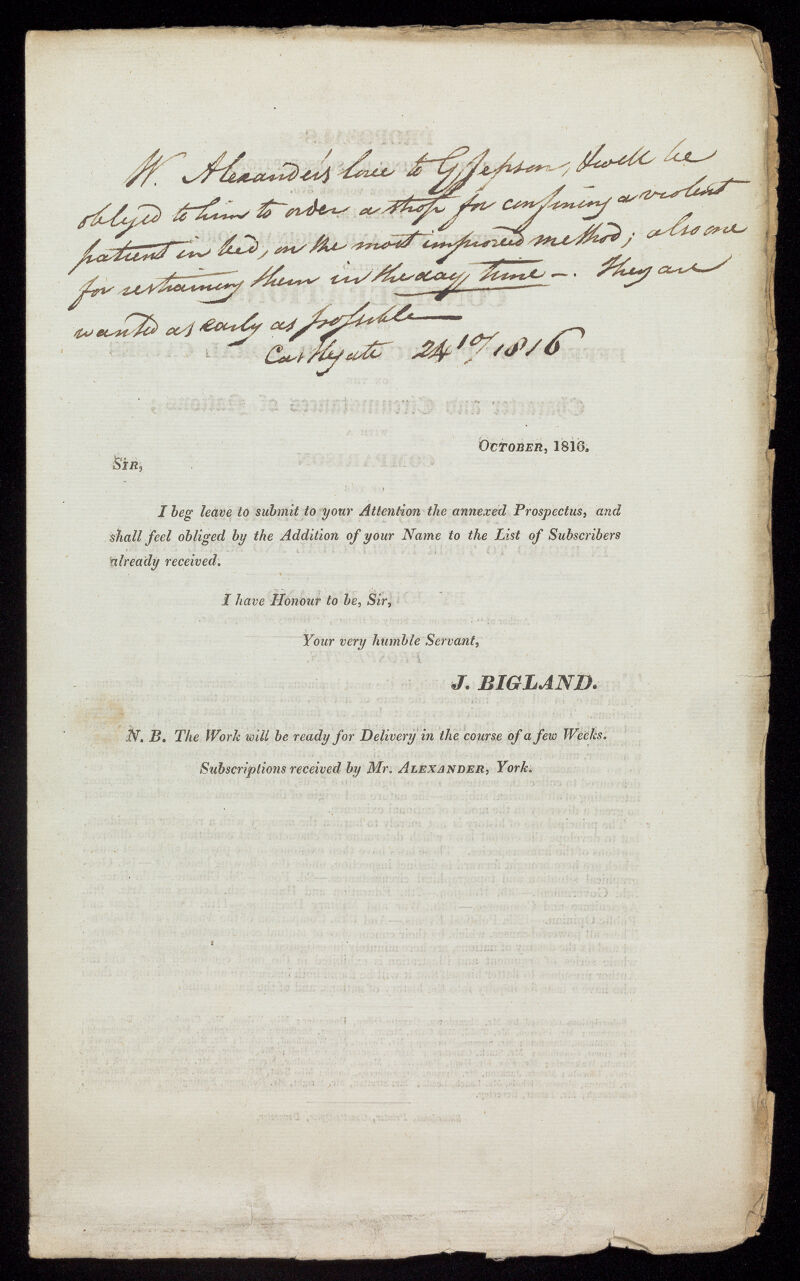 W. Alexander's love to G Jepson, & will be
obliged to him to order a strop for confining a violent
patient in bed, on the most improved method; also one
for restraining them in the day time -. They are
wanted as early as possible
Castlegate 24 10/1816
OCTOBER, 1816.
SIR,
I beg leave to submit to your Attention the annexed Prospectus, and
shall feel obliged by the Addition of your Name to the List of Subscribers
already received.
I have Honour to be, Sir,
Your very humble Servant,
J. BIGLAND.
N. B. The Work will be ready for Delivery in the course of a few Weeks.
Subscriptions received by Mr. ALEXANDER, York.